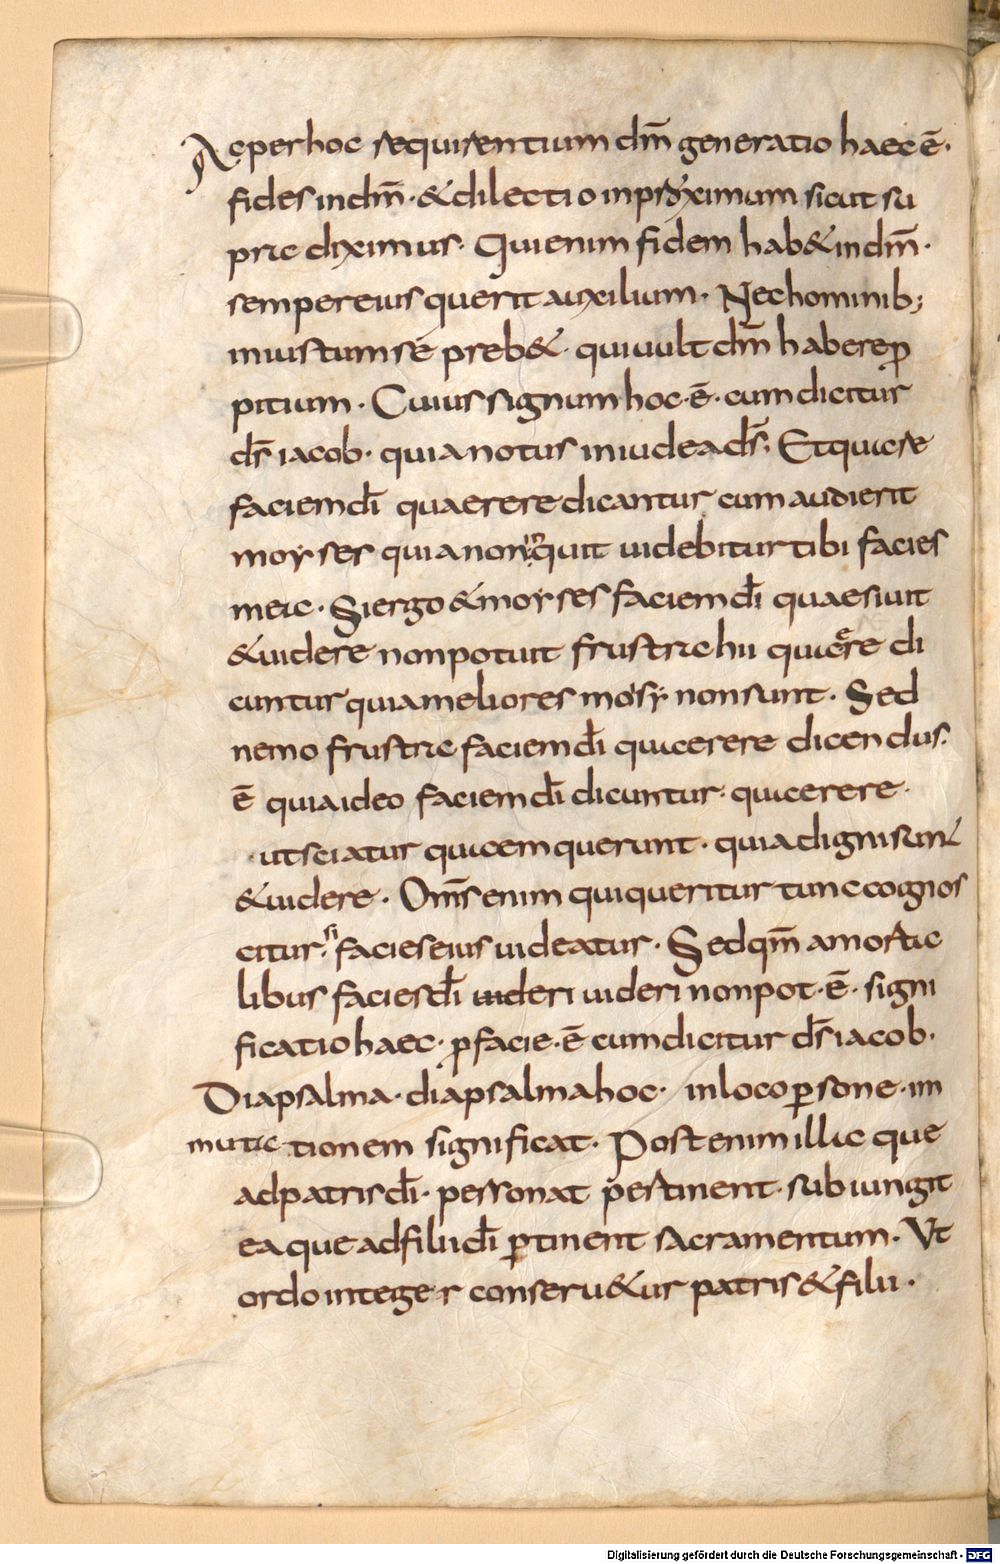 Ac per hoc requirentium dm̄ generatio haec ē·
fides in dm̄· & dilectio in proximum sicut su
pra diximus· Qui enim fidem hab& in dm̄·
semper eius querit auxilium· Nec hominib;
iniustum se preb&· qui uult dm̄ habere ꝓ
pitium· Cuius signum hoc· ē· cum dicitur
ds̄ iacob· quia notus in iudea ds̄· Et quaere
faciem dī quaerere dicantur cum audierit
moyses quia non inquit uidebitur tibi facies
mea· Si ergo & moyses faciem dī quaesiuit
& uidere non potuit frustra hii quaerere di
cuntur quia meliores mosy non sunt· Sed
nemo frustra faciem dī quaerere dicendus·
ē quia ideo faciem dī dicuntur· quaerere·
ut sciatur quia eum querunt· quia digni sunt
& uidere· Oms̄ enim qui queritur tunc cognos
citur· si facies eius uideatur· Sed qm̄ a morta
libus facies dī uideri uideri non pot· ē· signi
ficatio haec· ꝓ facie· ē cum dicitur ds̄ iacob·
Diapsalma· diapsalma hoc· in loco ꝑsone· im
muta tionem significat· Post enim illa que
ad patris dī· personat pertinent· subiungit
ea que ad filii dī ꝑtinent sacramentum· Vt
ordo integer conseru&ur patris & filii·
Digitalisierung gefördert durch die Deutsche Forschungsgemeinschaft - DFG